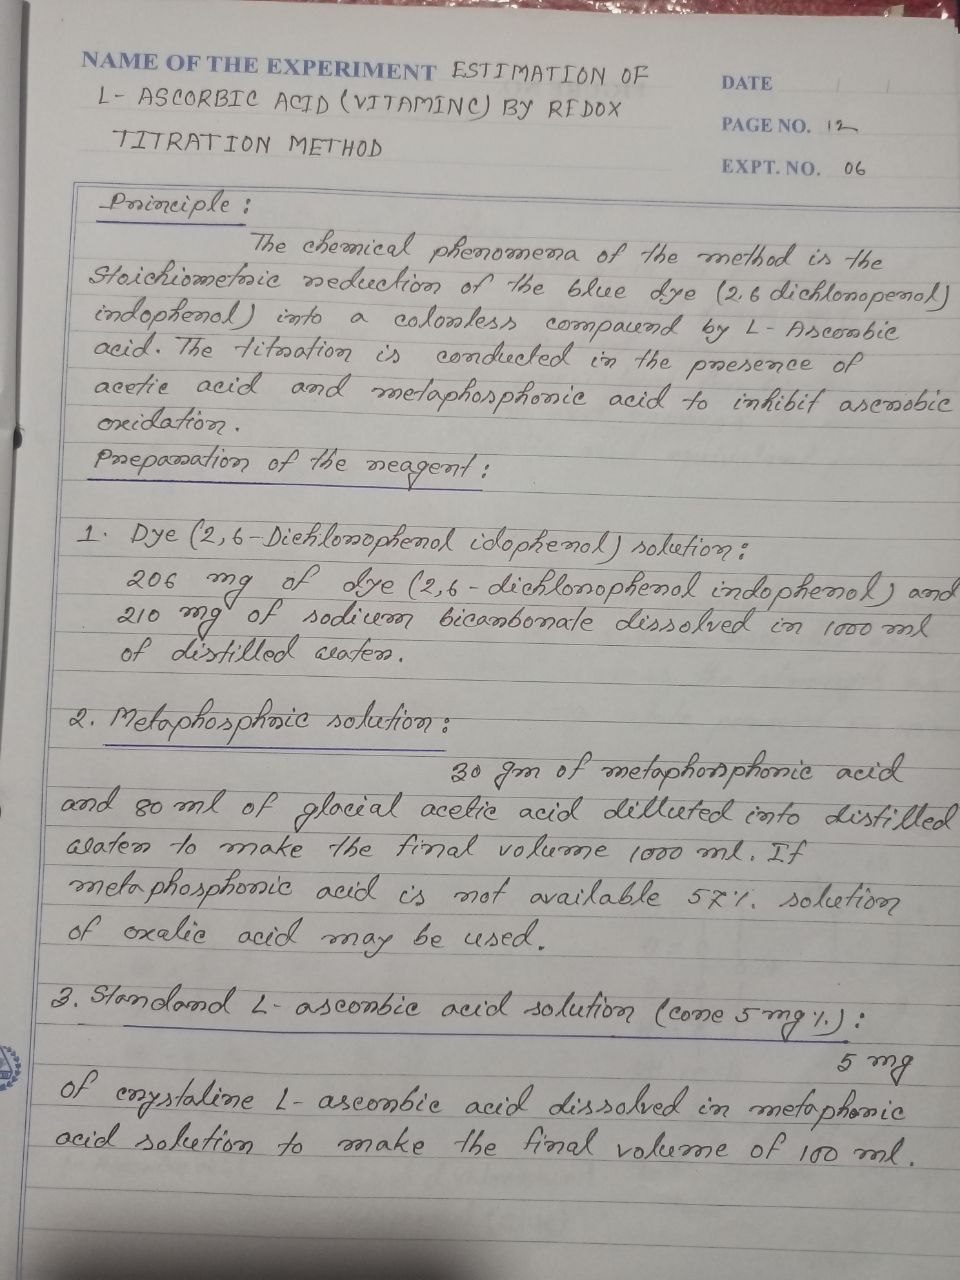 NAME OF THE EXPERIMENT ESTIMATION OF
L- ASCORBIC ACID (VITAMINC) BY REDOX
TITRATION METHOD
DATE
PAGE NO. 12
EXPT. NO. 06
Principle :
The chemical phenomena of the method is the
Stoichiometric reduction of the blue dye (2,6 dichloropenol)
indophenol) into a colorless compaund by L- Ascorbic
acid. The titration is conducted in the presence of
acetic acid and metaphosphoric acid to inhibit ascrobic
oxidation.
Preparation of the reagent :
1. Dye (2,6-Dichlorophenol idophenol) solution :
206 mg of dye (2,6 - dichlorophenol indophenol) and
210 mg of sodium bicarbonate dissolved in 1000 ml
of distilled water.
2. Metaphosphoic solution :
30 gm of metaphorsphoric acid
and 80 ml of glacial acetic acid dilluted into distilled
water to make the final volume 1000 ml. If
metaphosphoric acid is not available 5% solution
of oxalic acid may be used.
3. Standard L- ascorbic acid solution (conc 5 mg %) :
5 mg
of crystaline L- ascorbic acid dissolved in metaphoric
acid solution to make the final volume of 100 ml.